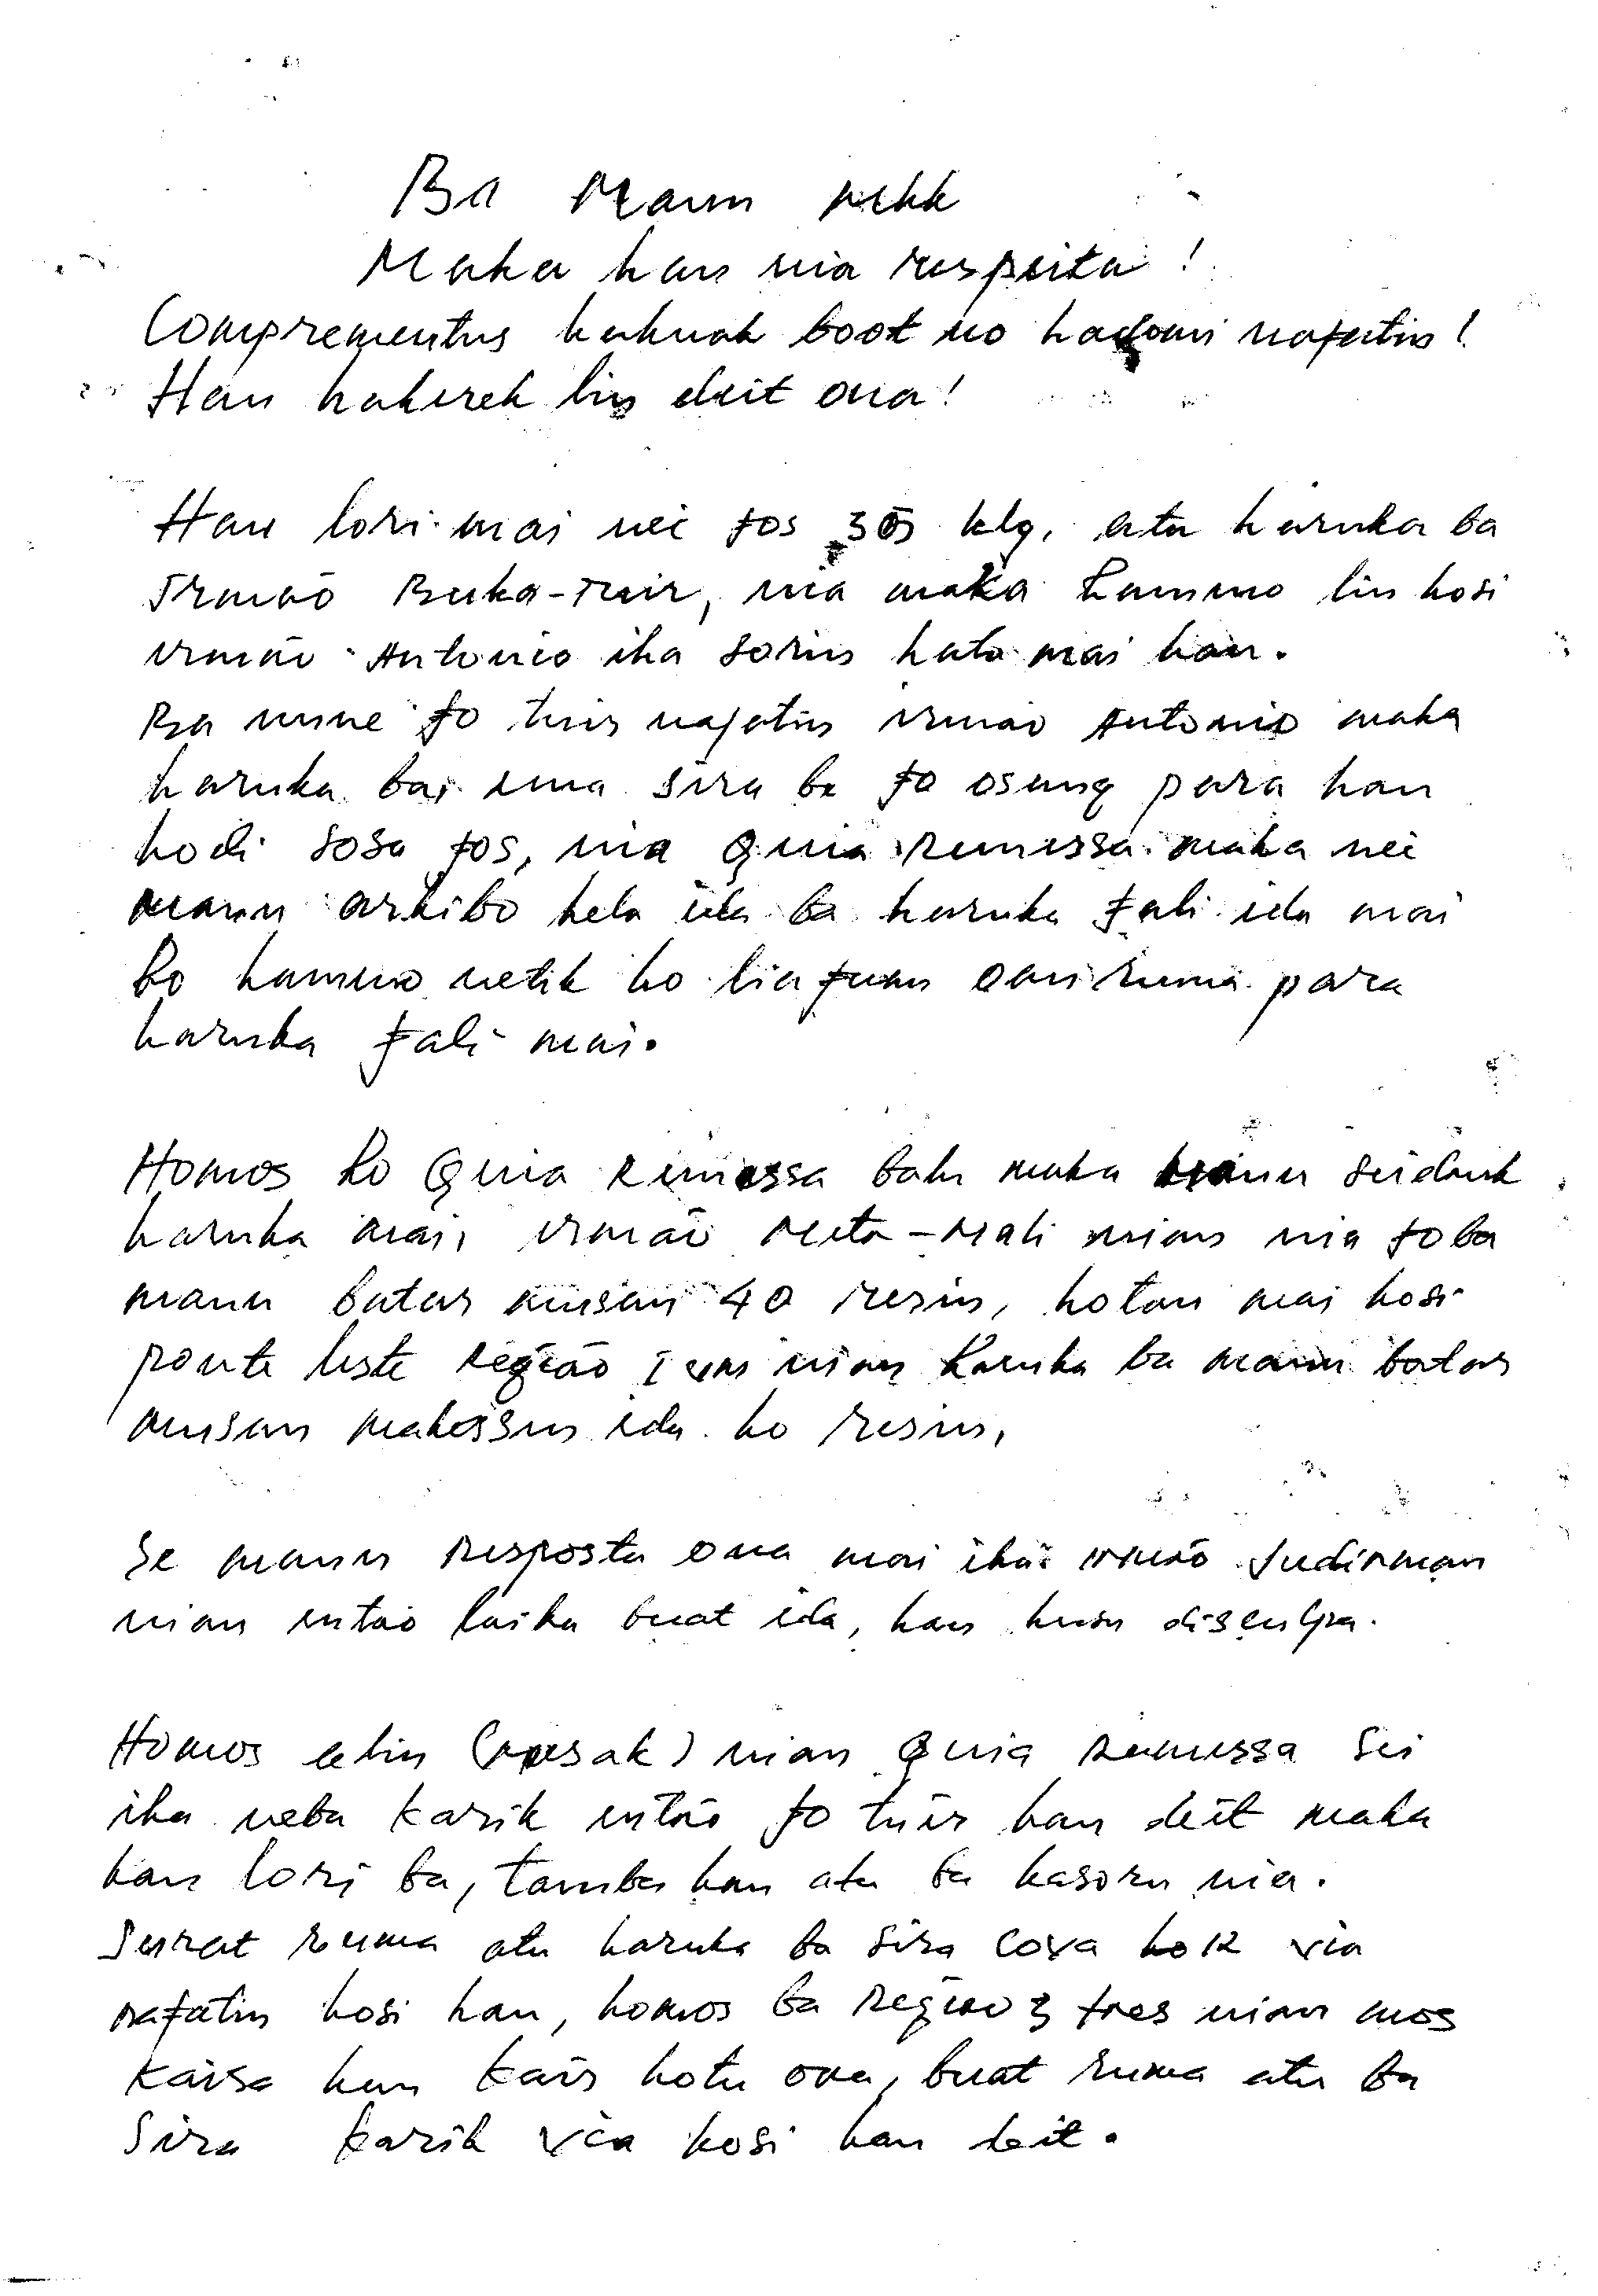 Ba Maun
Maka hau nia respeita!
Comprementus hakuak boot no hadomi nafatin!
Hau hakerek lin deit ona!
Hau lori mai nei fos 30 klg, atu haruka ba
Irmão Buka-Tuir, nia maka hamuno lin hosi
irmão Antonio iha sorin hato mai hau.
Ba nune fo tuir nafatin irmao Antonio maka
haruka bai ema sira be fo osang para hau
hodi sosa fos, nia Guia Remessa maka nei
maun arkibo hela ida ba haruka fali ida mai
ho hamuno netik ho lia fuan oan ruma para
haruka fali mai.
Homos ho Guia Remessa balu maka maun seidauk
haruka mai, irmão Meta-Mali nian nia fo ba
maun batar musan 40 resin, hotan mai hosi
ponte leste Região I nian haruka ba maun batar
musan mahossun ida ho resin,
Se maun resposta ona mai iha irmão Sudirman
nian entao laika buat ida, hau husu disculpa.
Homos elin (pesak) nian Guia Remessa sei
iha neba karik então fo tuir hau deit maka
hau lori ba, tamba hau atu ba hasoru nia.
Surat ruma atu haruka ba sira cova ho R via
nafatin hosi hau, homos ba região 3 tres nian mos
kaisa hau kair hotu ona, buat ruma atu ba
sira karik via hosi hau deit.